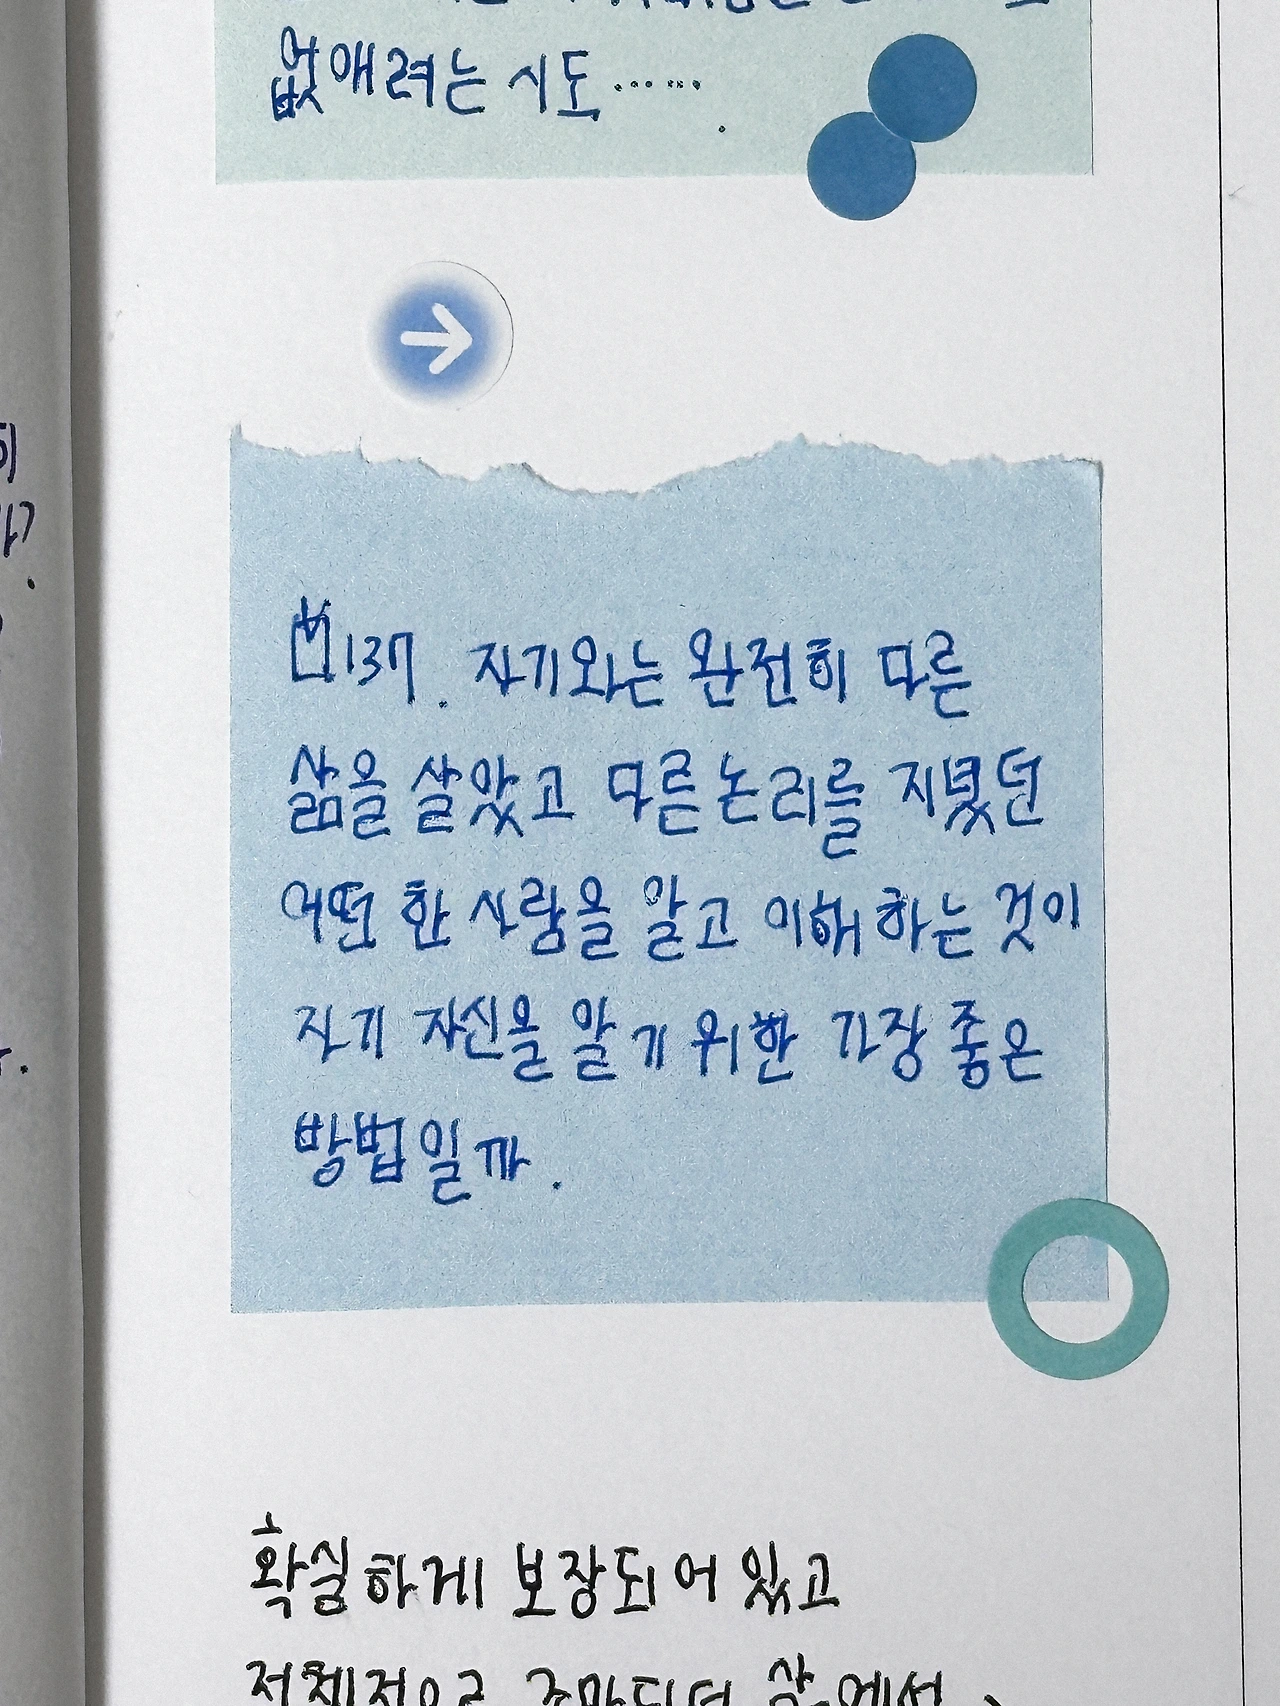 없애려는 시도……
137. 자기와는 완전히 다른
삶을 살았고 다른 논리를 지녔던
어떤 한 사람을 알고 이해하는 것이
자기 자신을 알기 위한 가장 좋은
방법일까.
확실하게 보장되어 있고
전체적으로 조망되던 삶에서,